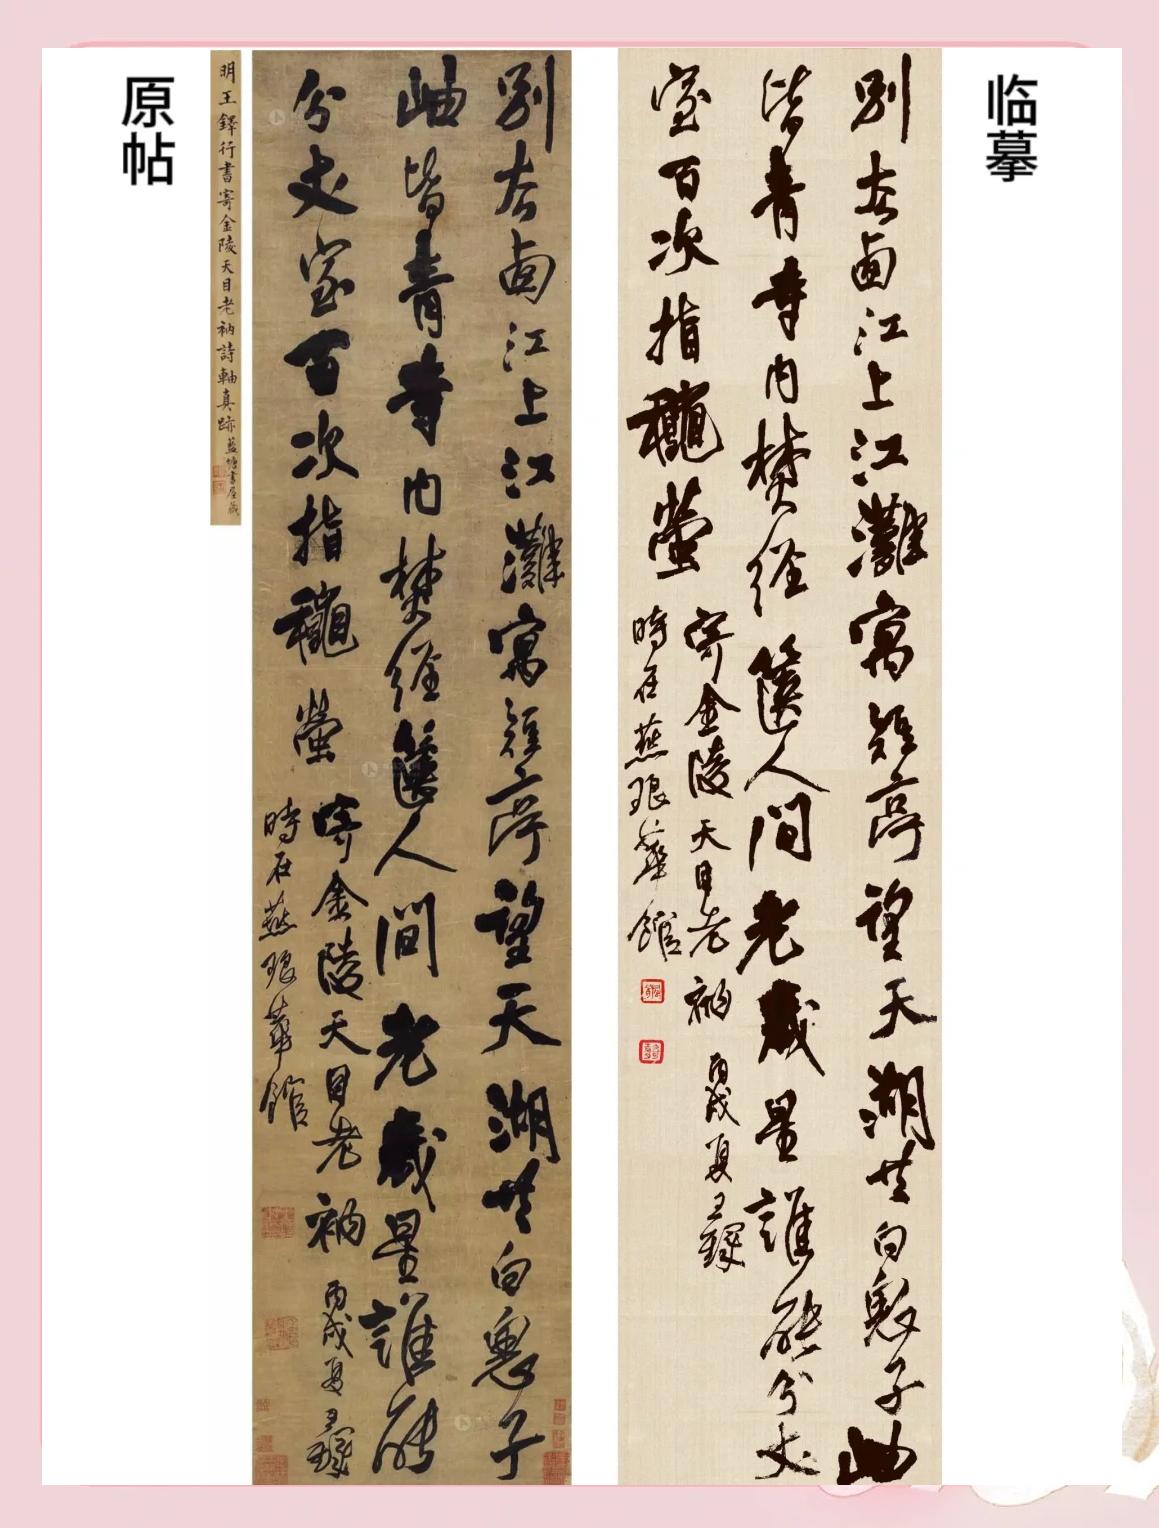 原帖
明王鐸行書寄金陵天目老衲詩軸真跡 藍塘書屋藏
別去卥江上江灘寓短亭望天湖共白子
岫皆青寺内梵經篋人間老歲星誰能
分丈室百次指龝螢
寄金陵天目老衲 丙戌夏王鐸
時在燕琅華館
临摹
別去卥江上江灘寓短亭望天湖共白子岫
皆青寺内梵經篋人間老歲星誰能分丈
室百次指龝螢
寄金陵天目老衲 丙戌夏王鐸
時在燕琅華館